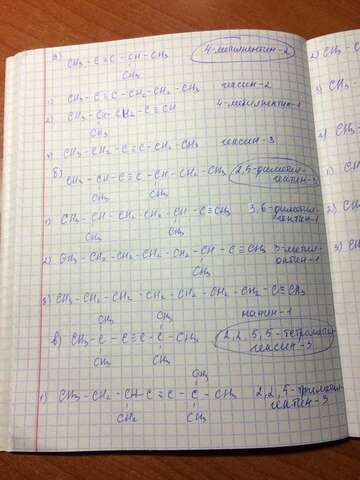 а)
CH₃ - C ≡ C - CH - CH₃ 4-метилпентин-2
CH₃
1) CH₃ - C ≡ C - CH₂ - CH₂ - CH₃ гексин-2
2) CH₃ - CH - CH₂ - C ≡ CH 4-метилпентин-1
CH₃
3) CH₃ - CH₂ - C ≡ C - CH₂ - CH₃ гексин-3
б) CH₃
CH₃ - CH - C ≡ C - CH - CH₂ - CH₃ 2,5-диметил-
CH₃ гептин-3
1) CH₃ - CH - CH₂ - CH₂ - CH - C ≡ CH₃ 3,6-диметил-
CH₃ CH₃ гептин-1
2) CH₃ - CH₂ - CH₂ - CH₂ - CH₂ - CH - C ≡ CH₃ 3-метил-
CH₃ октин-1
3) CH₃ - CH₂ - CH₂ - CH₂ - CH₂ - CH₂ - CH₂ - C ≡ CH₃
CH₃ CH₃ нонин-1
в) CH₃ - C - C ≡ C - C - CH₃ 2,2,5,5-тетраметил-
CH₃ CH₃ гексин-3
CH₃
1) CH₃ - CH₂ - CH - C ≡ C - C - CH₃ 2,2,5-триметил-
CH₃ CH₃ гептин-3
2)
3)
2)
1)
2)
3)